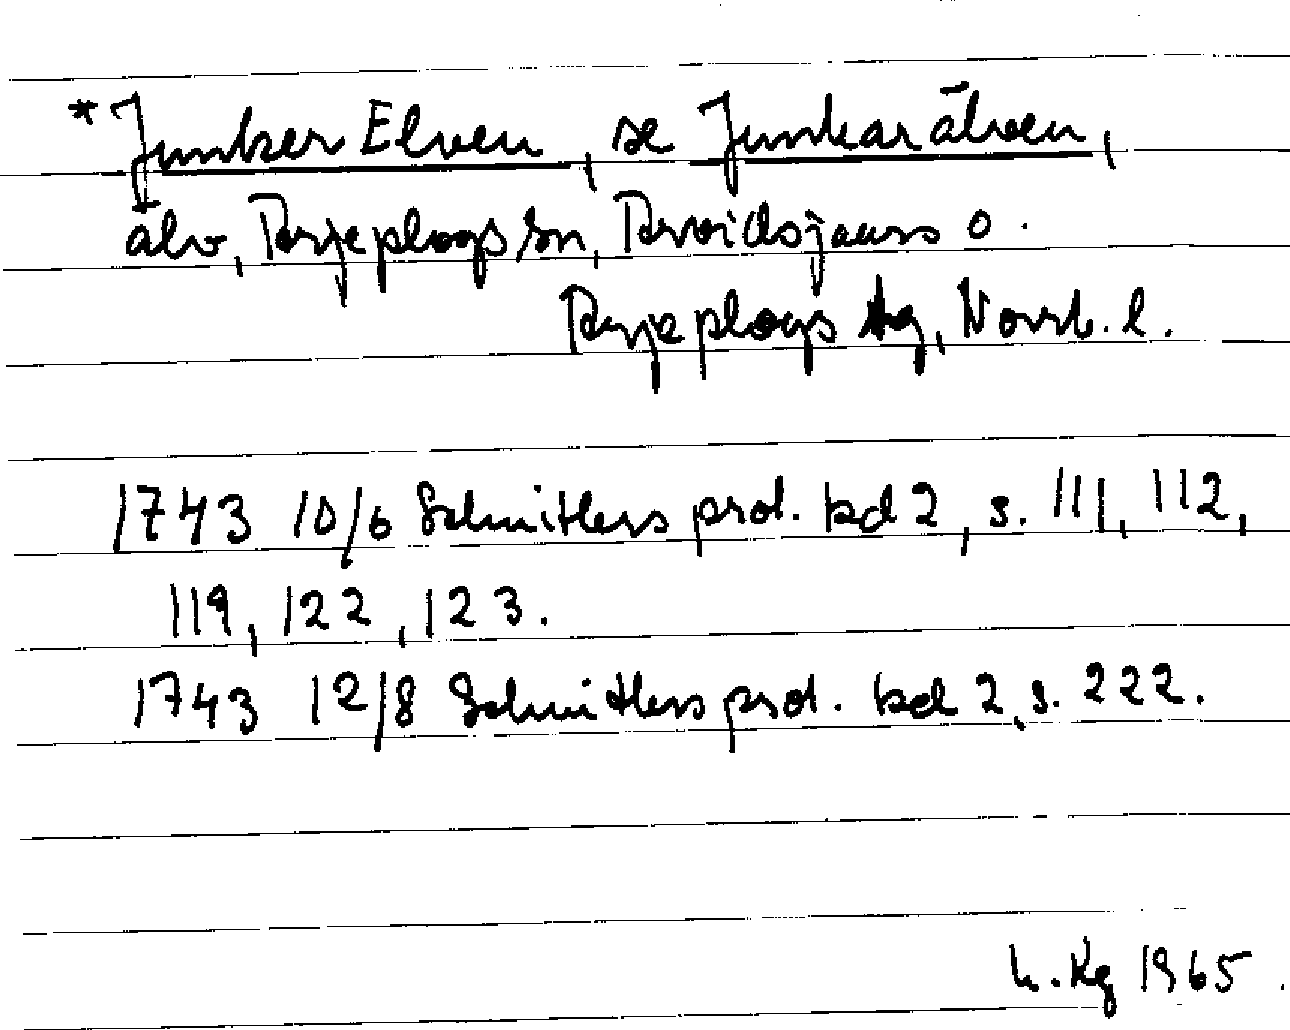 *Junker Elven, se Junkarälven,
älv, Arjeplogs sn, Arvidsjaurs o.
Arjeplogs tg, Norrb. l.
1743 10/6 Schnitlers prot. bd 2, s. 111, 112,
119, 122, 123.
1743 12/8 Schnitlers prot. bd 2, s. 222.
h. Kg 1965.